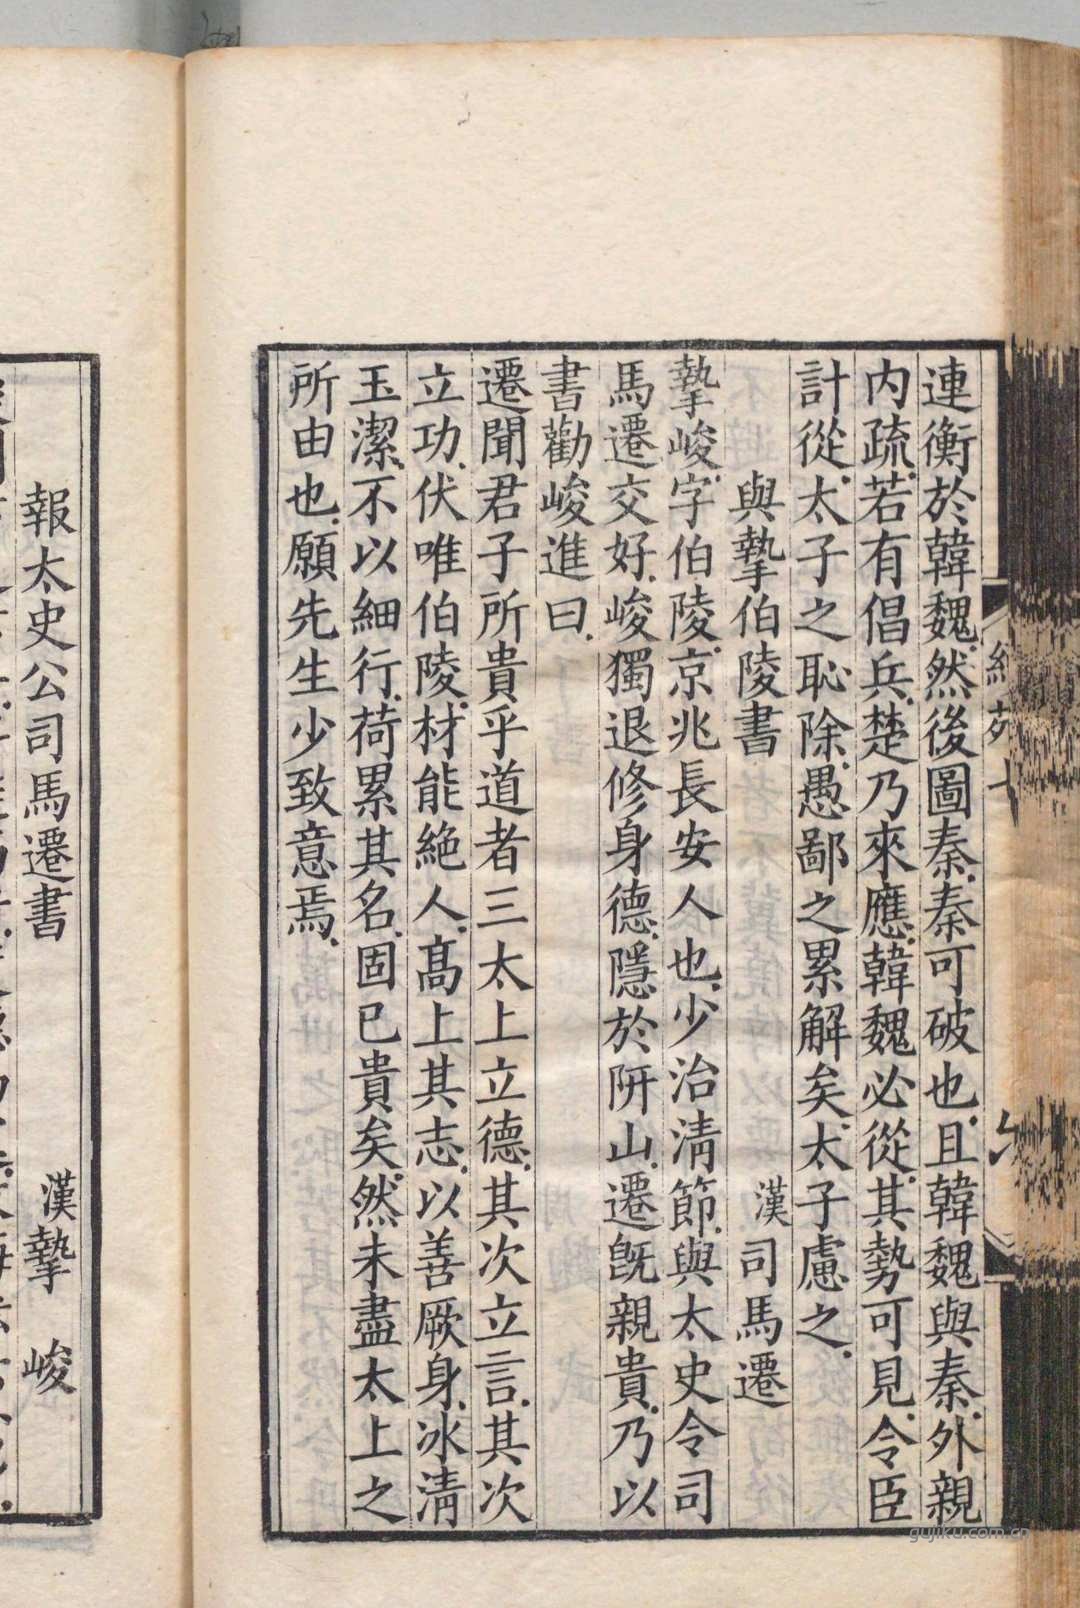 連衡於韓魏然後圖秦秦可破也且韓魏與秦外親
内疏若有倡兵楚乃來應韓魏必從其勢可見令臣
計從太子之恥除愚鄙之累解矣太子慮之
與摯伯陵書 漢司馬遷
摯峻字伯陵京兆長安人也少治淸節與太史令司
馬遷交好峻獨退修身德隱於阱山遷旣親貴乃以
書勸峻進曰
遷聞君子所貴乎道者三太上立德其次立言其次
立功伏唯伯陵材能絶人高上其志以善厥身冰淸
玉潔不以細行荷累其名固已貴矣然未盡太上之
所由也願先生少致意焉
報太史公司馬遷書 漢摯峻
gujiku.com.cn